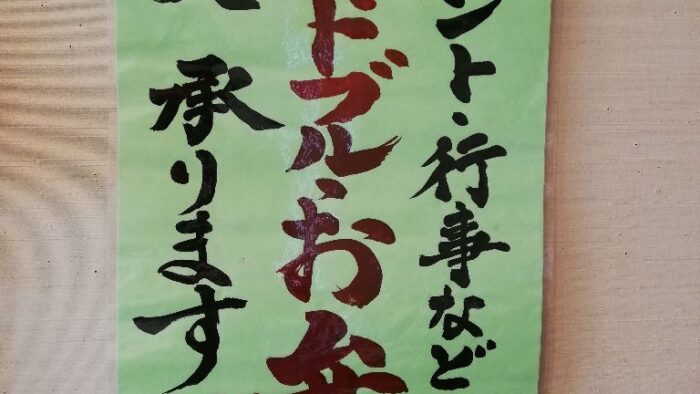 ント・行事など
ドブル・お弁
承ります